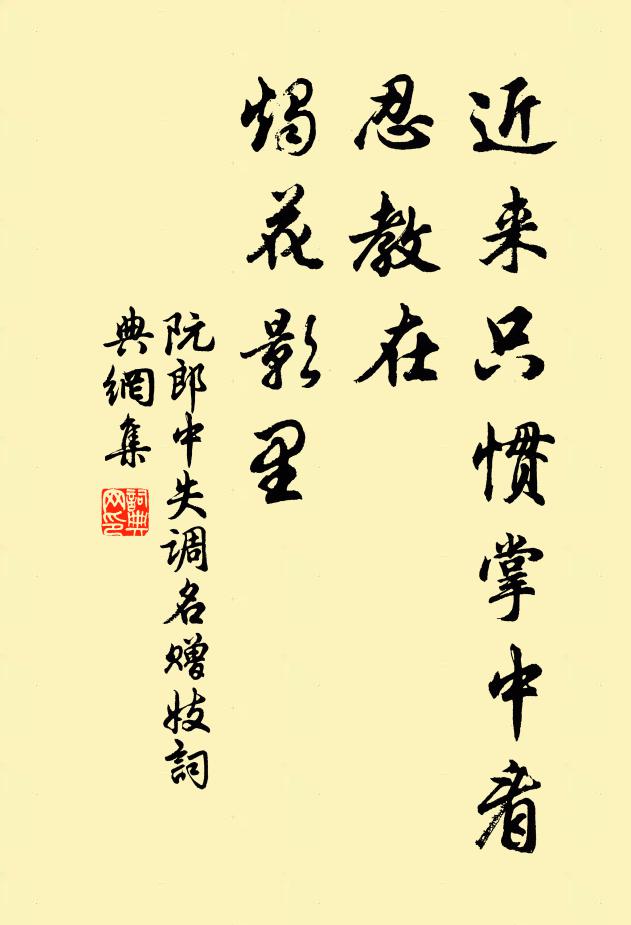 近来只惯掌中看
忍教在
烛花影里
阮郎中失调名赠妓詞
典網集
詞典網印